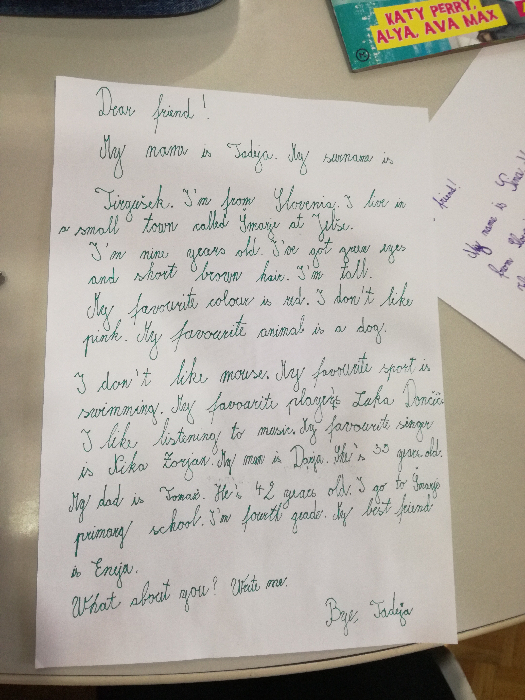 KATY PERRY,
ALYA, AVA MAX
Dear friend!
My name is Tadeja. My surname is
I'm from Slovenia. I live in
a small town called Šmarje at Jelše.
I'm nine years old. I've got green eyes
and short brown hair. I'm tall.
My favourite colour is red. I don't like
pink. My favourite animal is a dog.
I don't like mouse. My favourite sport is
swimming. My favoarite player is Luka Dončić.
I like listening to music. My favourite singer
is Nika Zorjan. My mum is She's 33 years old.
My dad is Tomaž. He's 42 years old. I go to Šmarje
primary school. I'm fourth grade. My best friend
is Eneja.
What about you? Write me.
Bye, Tadeja
friend!
My name is
from